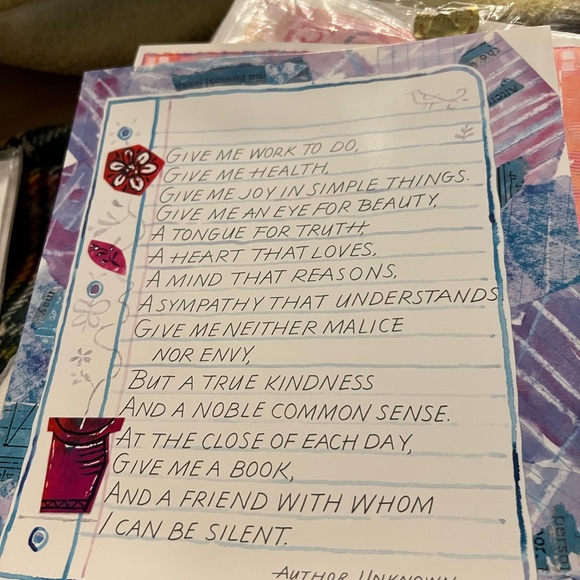 GIVE ME WORK TO DO,
GIVE ME HEALTH,
GIVE ME JOY IN SIMPLE THINGS.
GIVE ME AN EYE FOR BEAUTY,
A TONGUE FOR TRUTH,
A HEART THAT LOVES,
A MIND THAT REASONS,
A SYMPATHY THAT UNDERSTANDS.
GIVE ME NEITHER MALICE
NOR ENVY,
BUT A TRUE KINDNESS
AND A NOBLE COMMON SENSE.
AT THE CLOSE OF EACH DAY,
GIVE ME A BOOK,
AND A FRIEND WITH WHOM
I CAN BE SILENT.
AUTHOR UNKNOWN